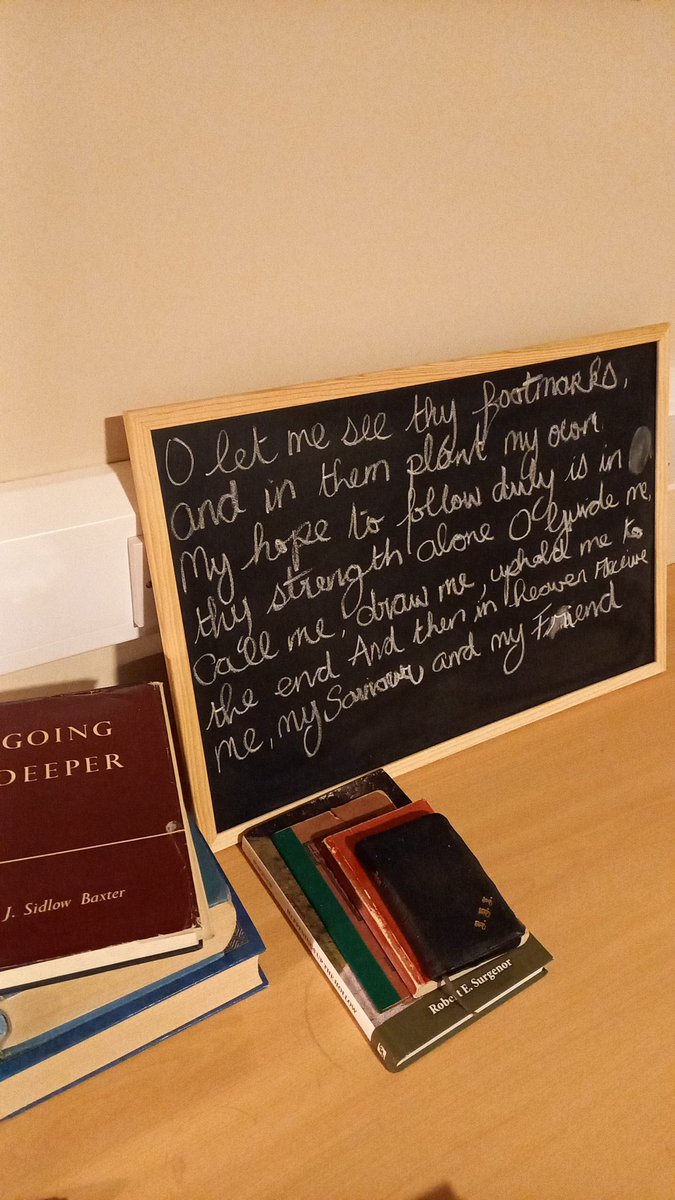 O let me see thy footmarks,
and in them plant my own
My hope to follow duly is in
thy strength alone O Guide me,
Call me, draw me, uphold me to
the end And then in heaven receive
me, my Saviour and my Friend
GOING
DEEPER
J. Sidlow Baxter
UP THE HOLLOW
Robert E. Surgenor